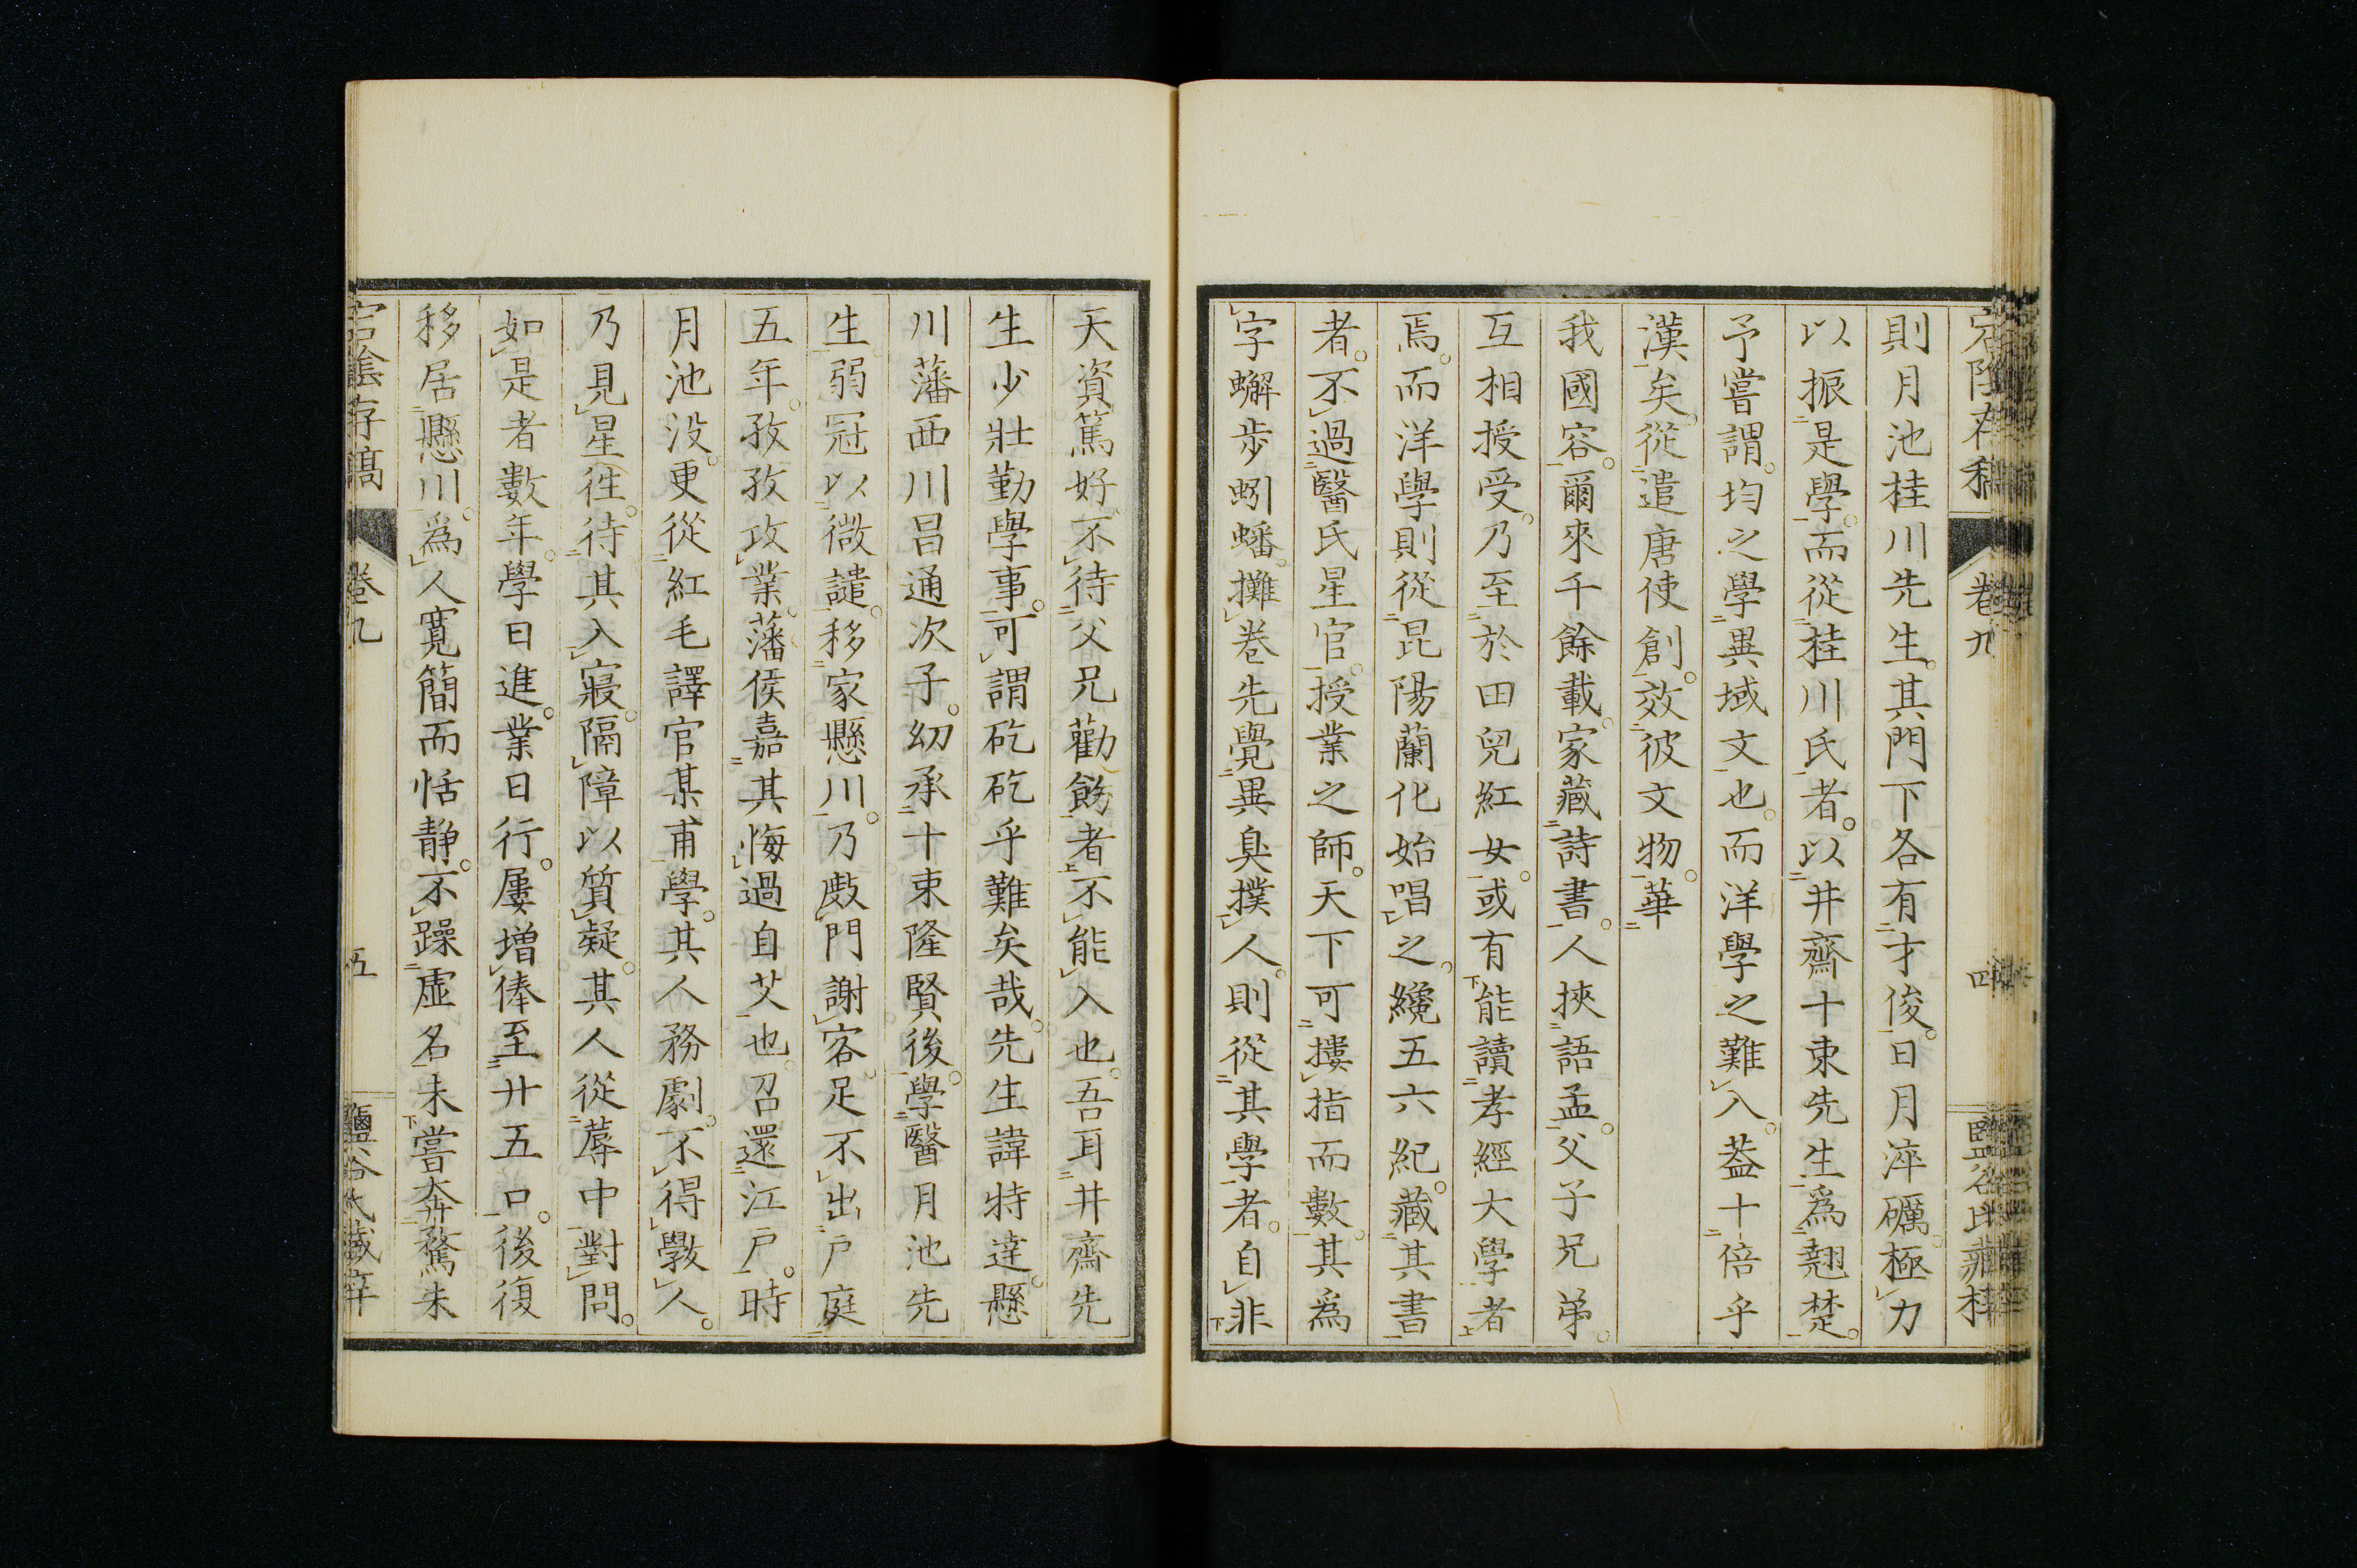 則月池桂川先生。其門下各有才俊。日月淬礪。極力
以振是學。而從桂川氏者。以井齋十束先生爲翹楚。
予嘗謂。均之學異域文也。而洋學之難入。葢十倍乎
漢矣。從遣唐使創。效彼文物。華
我國容。爾來千餘載。家藏詩書。人挾語孟。父子兄弟。
互相授受。乃至於田兒紅女。或有能讀孝經大學者
焉。而洋學則從昆陽蘭化始唱之。纔五六紀。藏其書
者。不過醫氏星官。授業之師。天下可摟指而數。其爲
字蠏步蚓蟠。攤卷先覺異臭撲人。則從其學者。自非
卷九
四
天資篤好。不待父兄勸飭者。不能入也。吾耳井齋先
生少壯勤學事。可謂矻矻乎難矣哉。先生諱特達。懸
川藩西川昌通次子。幼承十束隆賢後。學醫月池先
生。弱冠以微譴。移家懸川。乃㪣門謝客。足不出戶庭
五年。孜孜攻業。藩侯嘉其悔過自艾也。召還江戶。時
月池没。更從紅毛譯官某甫學。其人務劇。不得敎人。
乃見星徃。待其入寢。隔障以質疑。其人從蓐中對問。
如是者數年。學日進。業日行。屢増俸至廿五口。後復
移居懸川。爲人寬簡而恬静。不躁虛名。未嘗奔騖。未
存稿
卷九
五